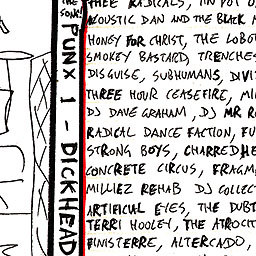 THE SOAK!
PUNX 1 - DICKHEAD
THEE RADICALS, TIN POT
ACOUSTIC DAN AND THE BLACK
HONGY FOR CHRIST, THE LOBO
SMOKEY BASTARD, TRENCHES
DISGUISE, SUBHUMANS, DIVI
THREE HOUR CEASEFIRE, MI
DJ DAVE GRAHAM, DJ MR RO
RADICAL DANCE FACTION, FU
STRONG BOYS, CHARRED HE
CONCRETE CIRCUS, FRAGM
MILLIEZ REHAB DJ COLLECT
ARTIFICIAL EYES, THE DUBT
TERRI HOOLEY, THE ATROCIT
FINISTERRE, ALTERCADO,